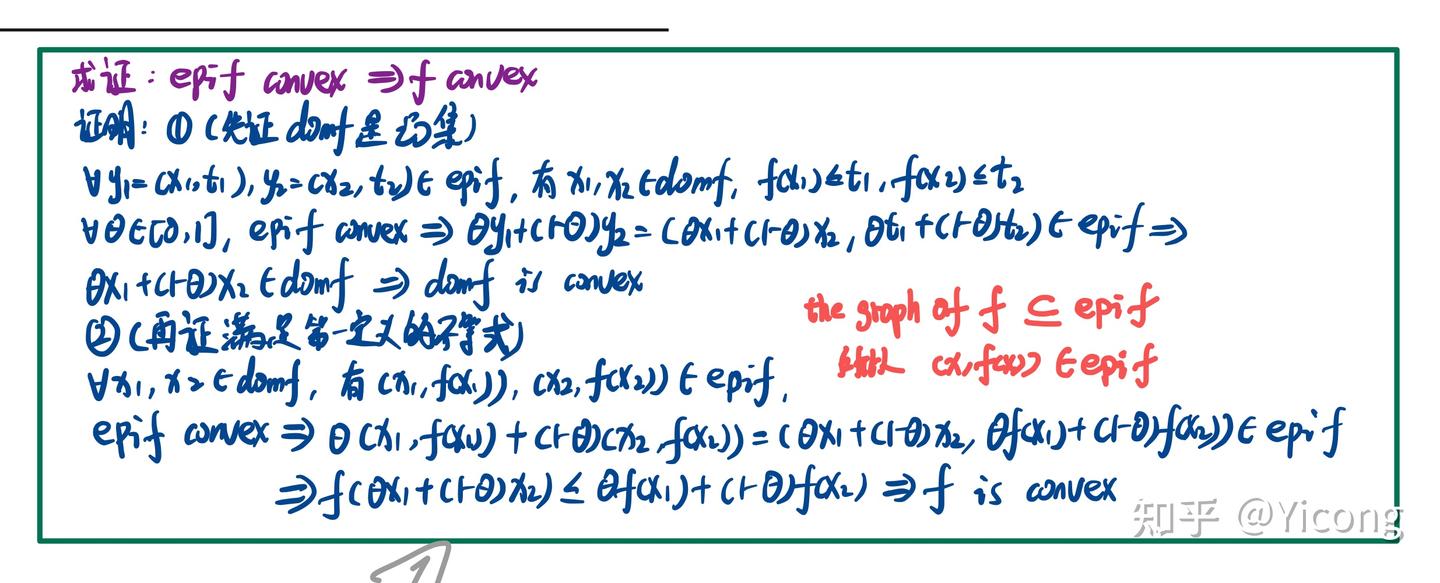 求证：epif convex ⇒ f convex
证明：① (先证 domf 是凸集)
∀ y₁=(x₁,t₁), y₂=(x₂,t₂) ∈ epif, 有 x₁,x₂ ∈ domf, f(x₁)≤t₁, f(x₂)≤t₂
∀ θ∈[0,1], epif convex ⇒ θy₁+(1-θ)y₂=(θx₁+(1-θ)x₂, θt₁+(1-θ)t₂) ∈ epif ⇒
θx₁+(1-θ)x₂ ∈ domf ⇒ domf is convex
the graph of f ⊆ epif
② (再证满足第一定义的不等式)
(x,f(x)) ∈ epif
∀ x₁, x₂ ∈ domf, 有 (x₁,f(x₁)), (x₂,f(x₂)) ∈ epif,
epif convex ⇒ θ(x₁,f(x₁))+(1-θ)(x₂,f(x₂))=(θx₁+(1-θ)x₂, θf(x₁)+(1-θ)f(x₂)) ∈ epif
⇒ f(θx₁+(1-θ)x₂) ≤ θf(x₁)+(1-θ)f(x₂) ⇒ f is convex
知乎 @Yicong